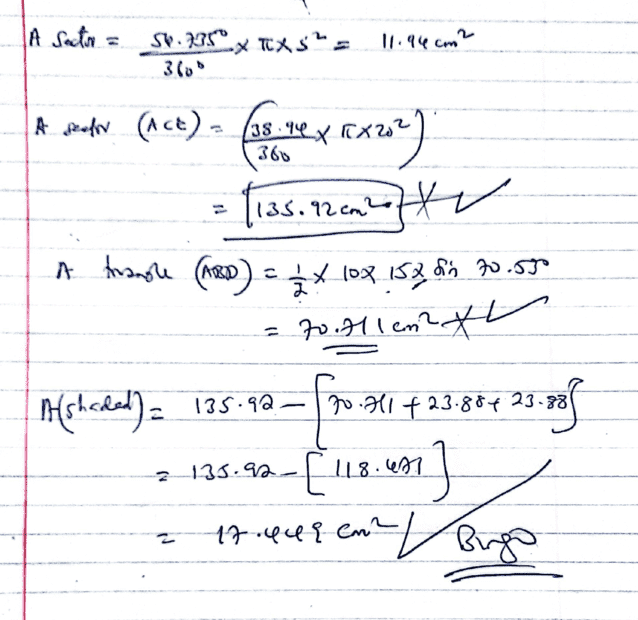 A Sector = 54.735° / 360° × π × 5² = 11.94 cm²
A sector (ACE) = (38.94 / 360 × π × 20²)
= [135.92 cm²]
A triangle (ABD) = 1/2 × 10 × 15 × Sin 70.53°
= 70.711 cm²
A(shaded) = 135.92 − [70.711 + 23.88 + 23.88]
= 135.92 − [118.471]
= 17.449 cm² Bingo